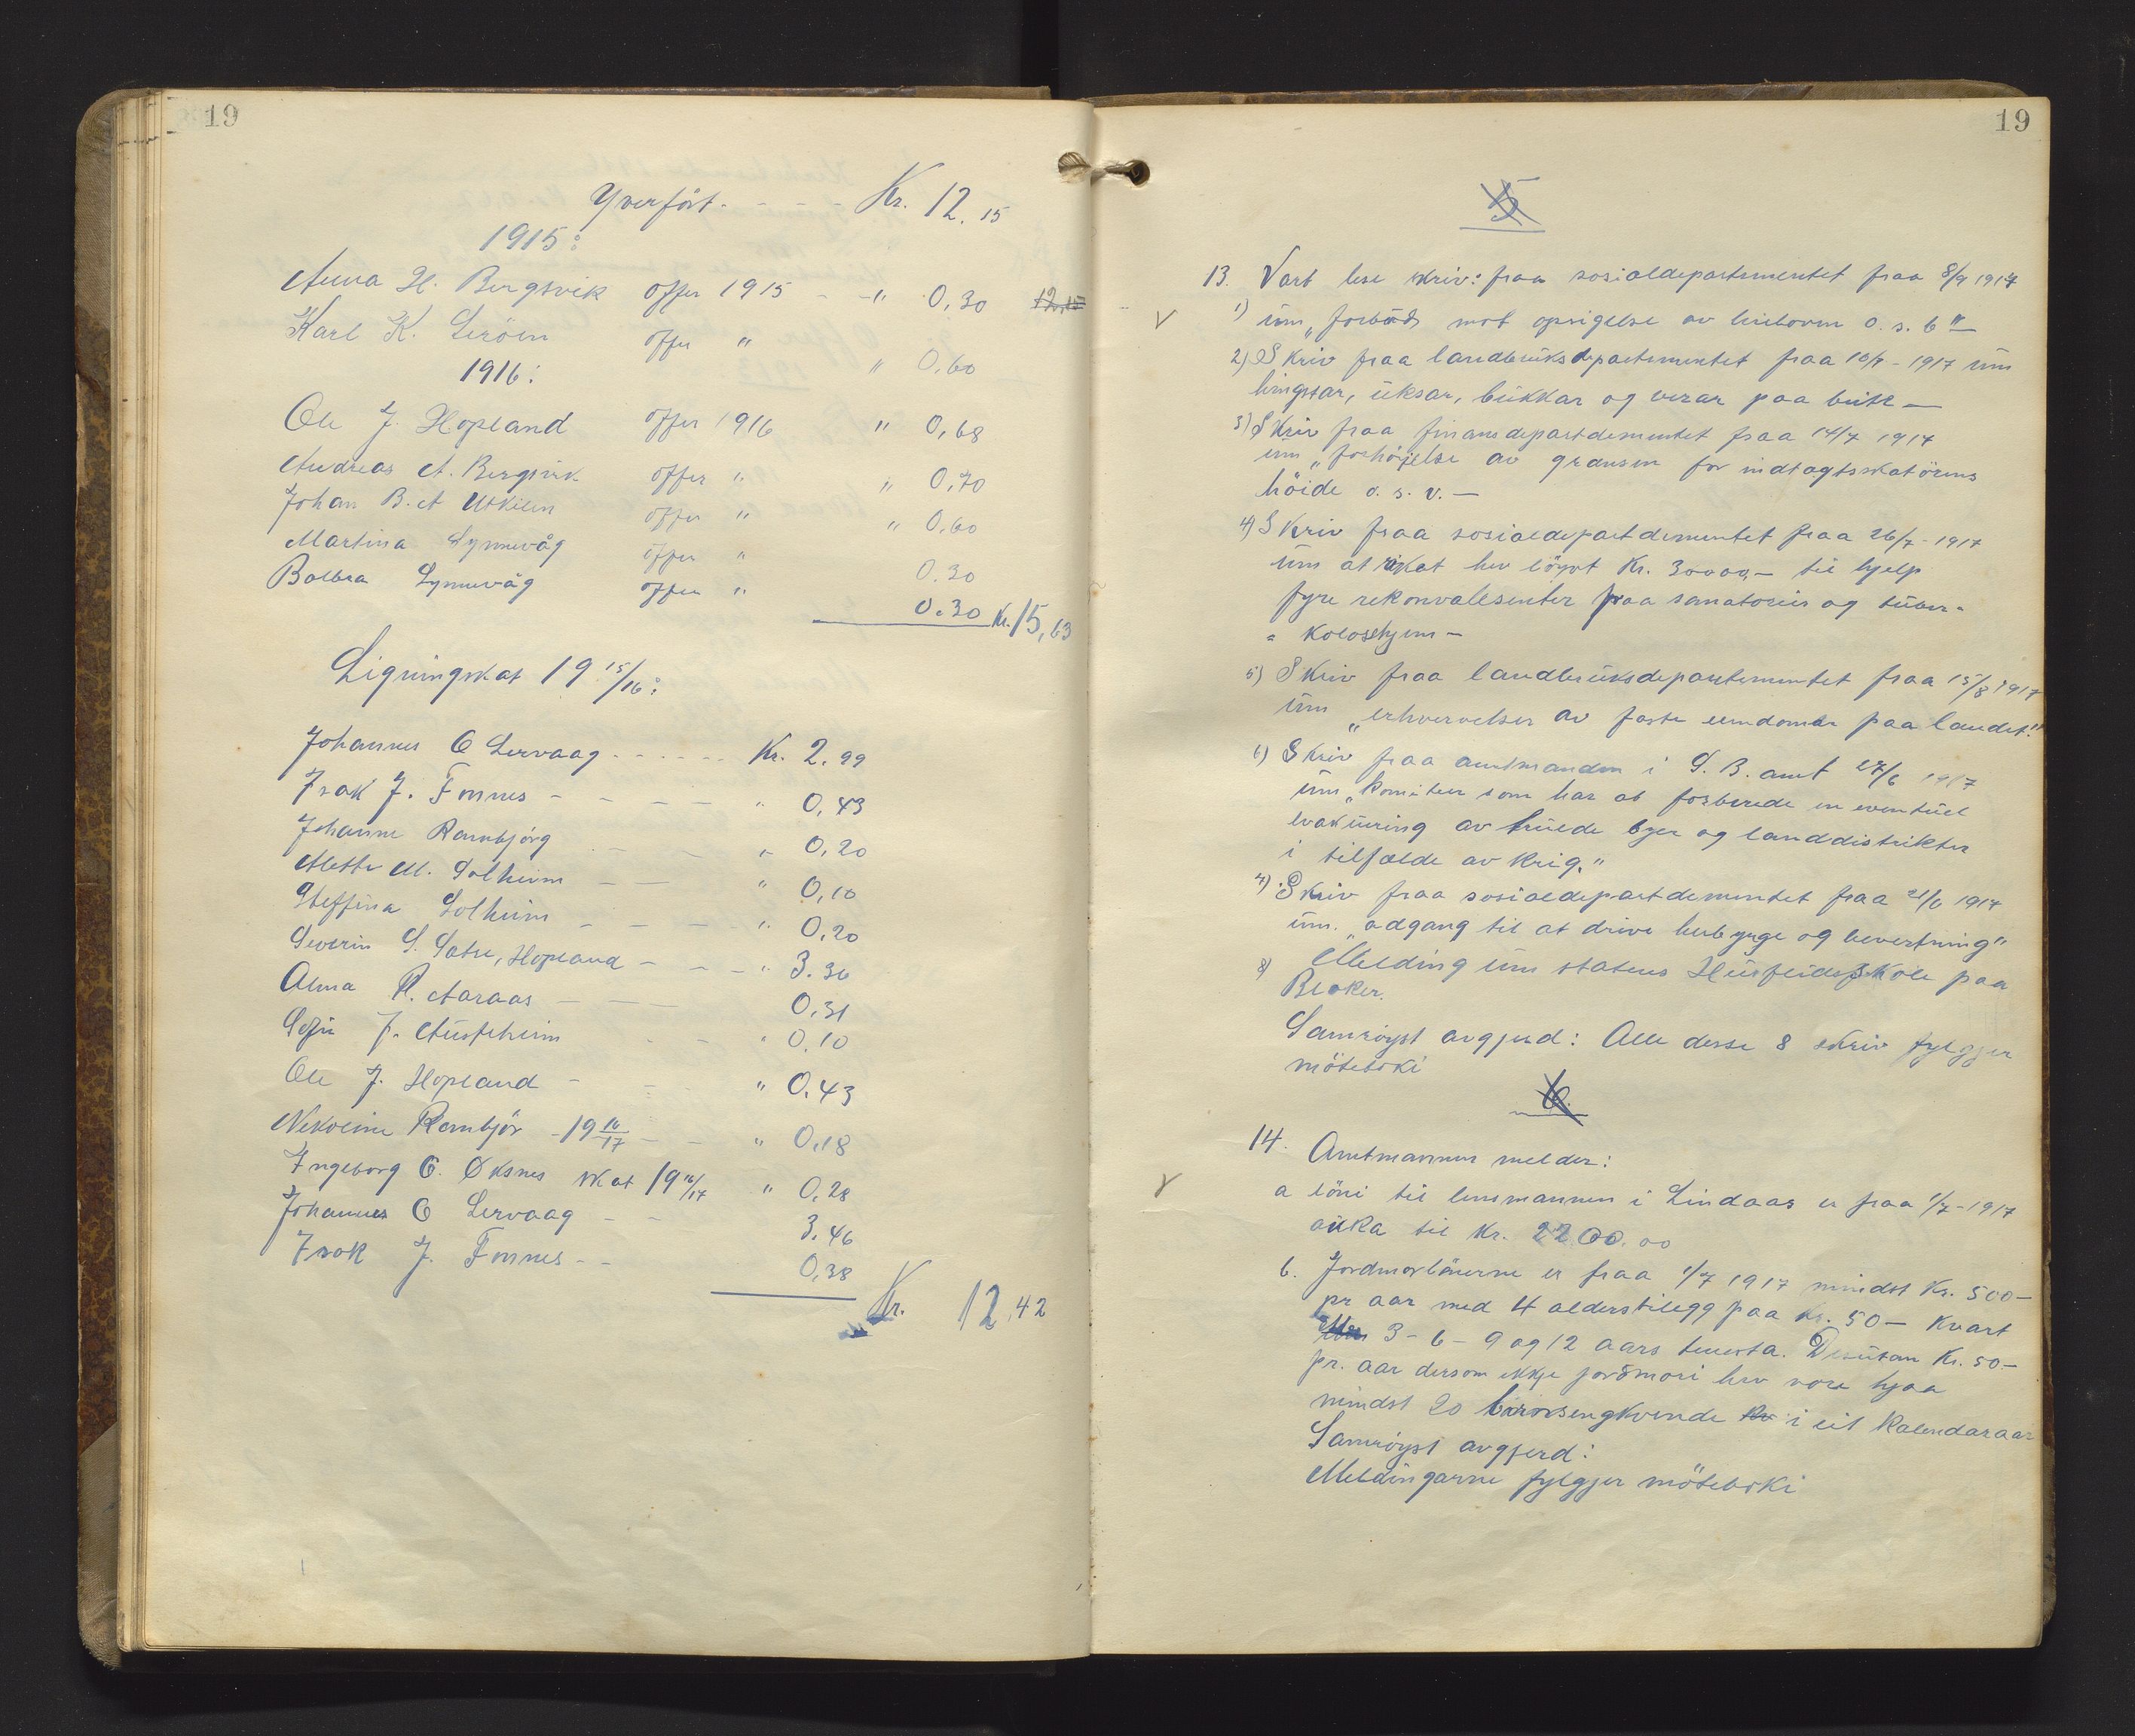 19
Yverfört - - - - Kr. 12.15
1915:
Anna H. Bergsvik offer 1915 - -" 0,30 12,15
Karl K. Leröen offer " " 0,60
1916:
Ole J. Hopland offer 1916 " 0,68
Andreas A. Bergsvik offer " " 0,70
Johan B. A Utkilen offer " " 0,60
Martina Synnevåg offer " 0.30
Bolbra Synnevåg offer " 0.30 Kr. 15,63
Ligningskat 19 15/16:
Johannes O Lervaag - - - - - - Kr. 2.99
Isak J. Fonnes - - - - - " 0,43
Johanne Rambjörg - - - " 0,20
Mette M. Solheim - - - " 0,10
Steffina Solheim - - - - " 0,20
Severin S. Satre, Hopland - - - " 3.30
Alma R. Aaraas - - - 0,31
Sofie J. Austrheim - - " 0.10
Ole J. Hopland - - - " 0.43
Rambjör - 19 16/17 - - " 0,18
Ingeborg O. Øksnes skat 19 16/17 " 0,28
Johannes O Lervaag - - 3.46
Isak J. Fonnes - - 0,38
Kr. 12,42
19
5
13. Vart lese skriv: fraa sosialdepartementet fraa 8/9 1917
1) um "forbud mot opsigelse av leieboere o. s. b" —
2) Skriv fraa landbruksdepartementet fraa 10/7 - 1917 um
hingstar, uksar, bukkar og verar paa beite —
3) Skriv fraa finansdepartdementet fraa 14/7 1917
um "forhöjelse av grænsen for indtagtsskatörens
höide o. s. v. —
4) Skriv fraa sosialdepartdementet fraa 26/7 - 1917
um at riket hev löyvt Kr. 30000,— til hjelp
fyre rekonvalesenter fraa sanatorier og tuber-
= koloshjem —
5) Skriv fraa landbruksdepartementet fraa 15/8 1917
um "erhvervelser av faste eiendomer paa landet."
6) Skriv fraa amtmanden i S. B. amt 27/6 1917
um "komiteer som har at forberede en eventuel
evakuering av truede byer og landdistrikter
i tilfælde av krig."
7) Skriv fraa sosialdepartdementet fraa 21/6 1917
um. "adgang til at drive herbyrge og bevertning"
8) Melding um statens Husflidsskole paa
Blaker.
Samröyst avgjerd: Alle desse 8 skriv fylgjer
möteboki
6.
14. Amtmannen melder:
a löni til lensmannen i Lindaas er fraa 1/7 - 1917
auka til Kr. 2200.00
b. Jordmorlönerne er fraa 1/7 1917 mindst Kr. 500—
pr aar med 4 alderstilegg paa Kr. 50— kvart
3 - 6 - 9 og 12 aars tenesta. Desutan Kr. 50.—
pr. aar dersom ikkje jordmori hev vore hjaa
mindst 20 barnsengkvende i eit kalendaraar
Samröyst avgjerd:
Meldingarne fylgjer möteboki